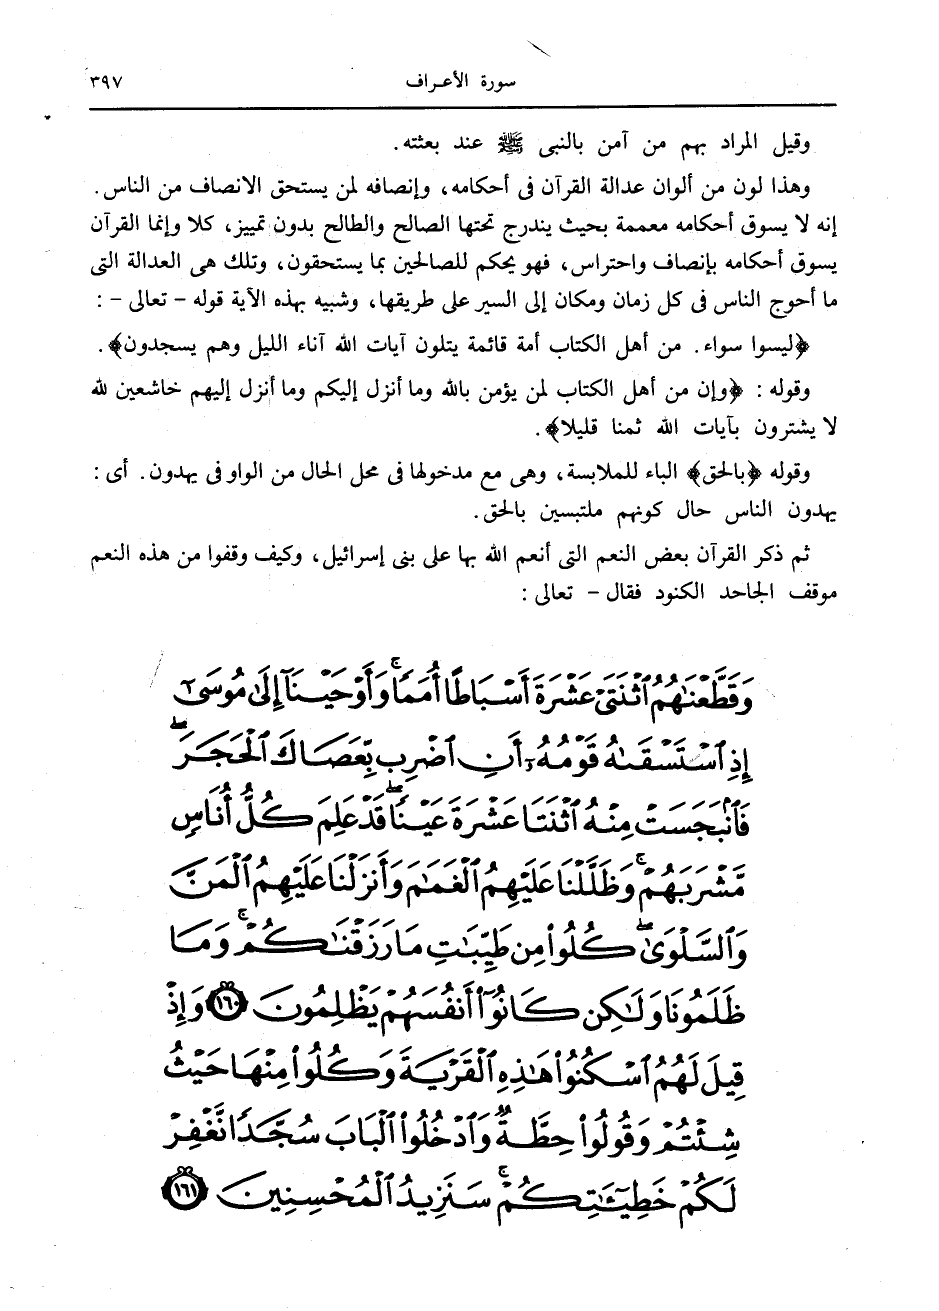 سورة الأعراف ٣٩٧
وقيل المراد بهم من آمن بالنبى ﷺ عند بعثته.
وهذا لون من ألوان عدالة القرآن فى أحكامه، وإنصافه لمن يستحق الانصاف من الناس.
إنه لا يسوق أحكامه معممة بحيث يندرج تحتها الصالح والطالح بدون تمييز، كلا وإنما القرآن
يسوق أحكامه بإنصاف واحتراس، فهو يحكم للصالحين بما يستحقون، وتلك هى العدالة التى
ما أحوج الناس فى كل زمان ومكان إلى السير على طريقها، وشبيه بهذه الآية قوله - تعالى - :
﴿ليسوا سواء. من أهل الكتاب أمة قائمة يتلون آيات الله آناء الليل وهم يسجدون﴾.
وقوله : ﴿وإن من أهل الكتاب لمن يؤمن بالله وما أنزل إليكم وما أنزل إليهم خاشعين لله
لا يشترون بآيات الله ثمنا قليلا﴾.
وقوله ﴿بالحق﴾ الباء للملابسة، وهى مع مدخولها فى محل الحال من الواو فى يهدون. أى :
يهدون الناس حال كونهم ملتبسين بالحق.
ثم ذكر القرآن بعض النعم التى أنعم الله بها على بنى إسرائيل، وكيف وقفوا من هذه النعم
موقف الجاحد الكنود فقال - تعالى :
وَقَطَّعْنَٰهُمُ ٱثْنَتَىْ عَشْرَةَ أَسْبَاطًا أُمَمًا ۚ وَأَوْحَيْنَآ إِلَىٰ مُوسَىٰٓ
إِذِ ٱسْتَسْقَىٰهُ قَوْمُهُۥٓ أَنِ ٱضْرِب بِّعَصَاكَ ٱلْحَجَرَ ۖ
فَٱنۢبَجَسَتْ مِنْهُ ٱثْنَتَا عَشْرَةَ عَيْنًا ۖ قَدْ عَلِمَ كُلُّ أُنَاسٍ
مَّشْرَبَهُمْ ۚ وَظَلَّلْنَا عَلَيْهِمُ ٱلْغَمَٰمَ وَأَنزَلْنَا عَلَيْهِمُ ٱلْمَنَّ
وَٱلسَّلْوَىٰ ۖ كُلُوا۟ مِن طَيِّبَٰتِ مَا رَزَقْنَٰكُمْ ۚ وَمَا
ظَلَمُونَا وَلَٰكِن كَانُوٓا۟ أَنفُسَهُمْ يَظْلِمُونَ ١٦٠ وَإِذْ
قِيلَ لَهُمُ ٱسْكُنُوا۟ هَٰذِهِ ٱلْقَرْيَةَ وَكُلُوا۟ مِنْهَا حَيْثُ
شِئْتُمْ وَقُولُوا۟ حِطَّةٌ وَٱدْخُلُوا۟ ٱلْبَابَ سُجَّدًا نَّغْفِرْ
لَكُمْ خَطِيٓـَٰٔتِكُمْ ۚ سَنَزِيدُ ٱلْمُحْسِنِينَ ١٦١